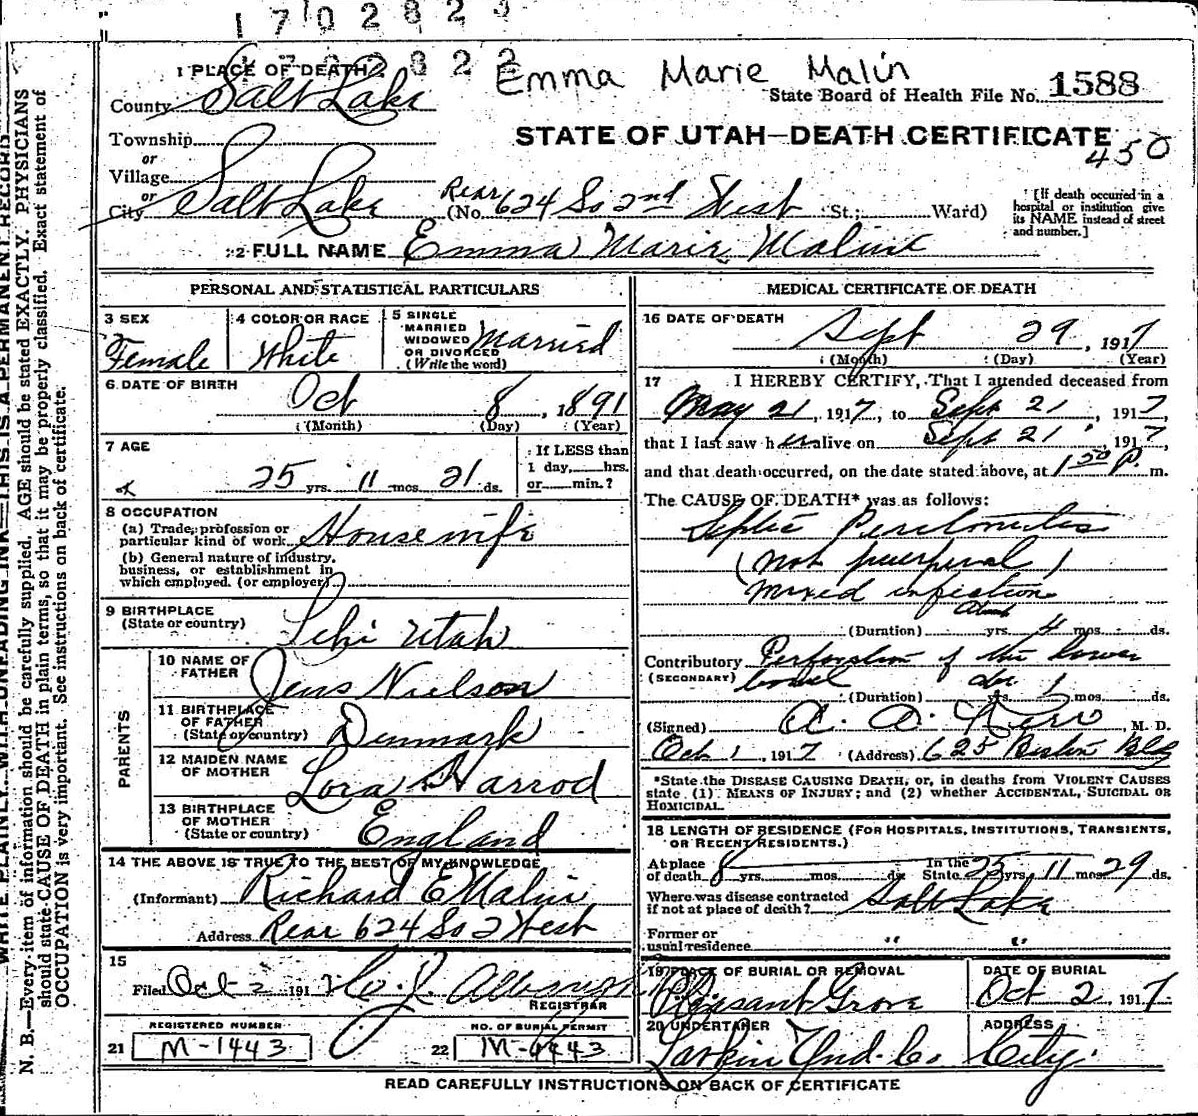 1702823
Emma Marie Malin
State Board of Health File No. 1588
STATE OF UTAH—DEATH CERTIFICATE
450
1 PLACE OF DEATH
County Salt Lake
Township
or
Village
or
City Salt Lake (No. Rear 624 So 2nd West St.; Ward)
[If death occurred in a hospital or institution give its NAME instead of street and number.]
2 FULL NAME Emma Marie Maline
PERSONAL AND STATISTICAL PARTICULARS
3 SEX
Female
4 COLOR OR RACE
White
5 SINGLE
MARRIED
WIDOWED
OR DIVORCED
(Write the word)
Married
6 DATE OF BIRTH
Oct 8, 1891
(Month) (Day) (Year)
7 AGE
25 yrs. 11 mos. 21 ds.
If LESS than
1 day, hrs.
or min.?
8 OCCUPATION
(a) Trade, profession or
particular kind of work Housewife
(b) General nature of industry,
business, or establishment in
which employed. (or employer)
9 BIRTHPLACE
(State or country)
Lehi Utah
PARENTS
10 NAME OF
FATHER
Jens Nielson
11 BIRTHPLACE
OF FATHER
(State or country)
Denmark
12 MAIDEN NAME
OF MOTHER
Lora Harrod
13 BIRTHPLACE
OF MOTHER
(State or country)
England
14 THE ABOVE IS TRUE TO THE BEST OF MY KNOWLEDGE
(Informant) Richard E Malin
Address Rear 624 So 2 West
15
Filed Oct 2 1917
REGISTRAR
REGISTERED NUMBER
21 M-1443
NO. OF BURIAL PERMIT
22 M-1443
MEDICAL CERTIFICATE OF DEATH
16 DATE OF DEATH
Sept 29, 1917
(Month) (Day) (Year)
17 I HEREBY CERTIFY, That I attended deceased from
May 21, 1917, to Sept 21, 1917
that I last saw her alive on Sept 21, 1917
and that death occurred, on the date stated above, at 1 50 P. m.
The CAUSE OF DEATH* was as follows:
Septic Peritonitis
(not puerperal)
mixed infection
(Duration) about yrs. 4 mos. ds.
Contributory Perforation of the lower
(SECONDARY) bowel
(Duration) yrs. mos. ds.
(Signed) A. A. Kerr, M. D.
Oct 1, 1917 (Address) 625 Boston Blg
*State the DISEASE CAUSING DEATH, or, in deaths from VIOLENT CAUSES
state (1) MEANS OF INJURY; and (2) whether ACCIDENTAL, SUICIDAL OR
HOMICIDAL.
18 LENGTH OF RESIDENCE (FOR HOSPITALS, INSTITUTIONS, TRANSIENTS,
OR RECENT RESIDENTS.)
At place
of death 8 yrs. mos. ds.
In the
State 25 yrs. 11 mos. 29 ds.
Where was disease contracted
if not at place of death? Salt Lake
Former or
usual residence " "
19 PLACE OF BURIAL OR REMOVAL
Pleasant Grove
DATE OF BURIAL
Oct 2, 1917
20 UNDERTAKER
Larkin Und. Co
ADDRESS
City.
READ CAREFULLY INSTRUCTIONS ON BACK OF CERTIFICATE
WRITE PLAINLY WITH UNFADING INK—THIS IS A PERMANENT RECORD
N. B.—Every item of information should be carefully supplied. AGE should be stated EXACTLY. PHYSICIANS
should state CAUSE OF DEATH in plain terms, so that it may be properly classified. Exact statement of
OCCUPATION is very important. See instructions on back of certificate.